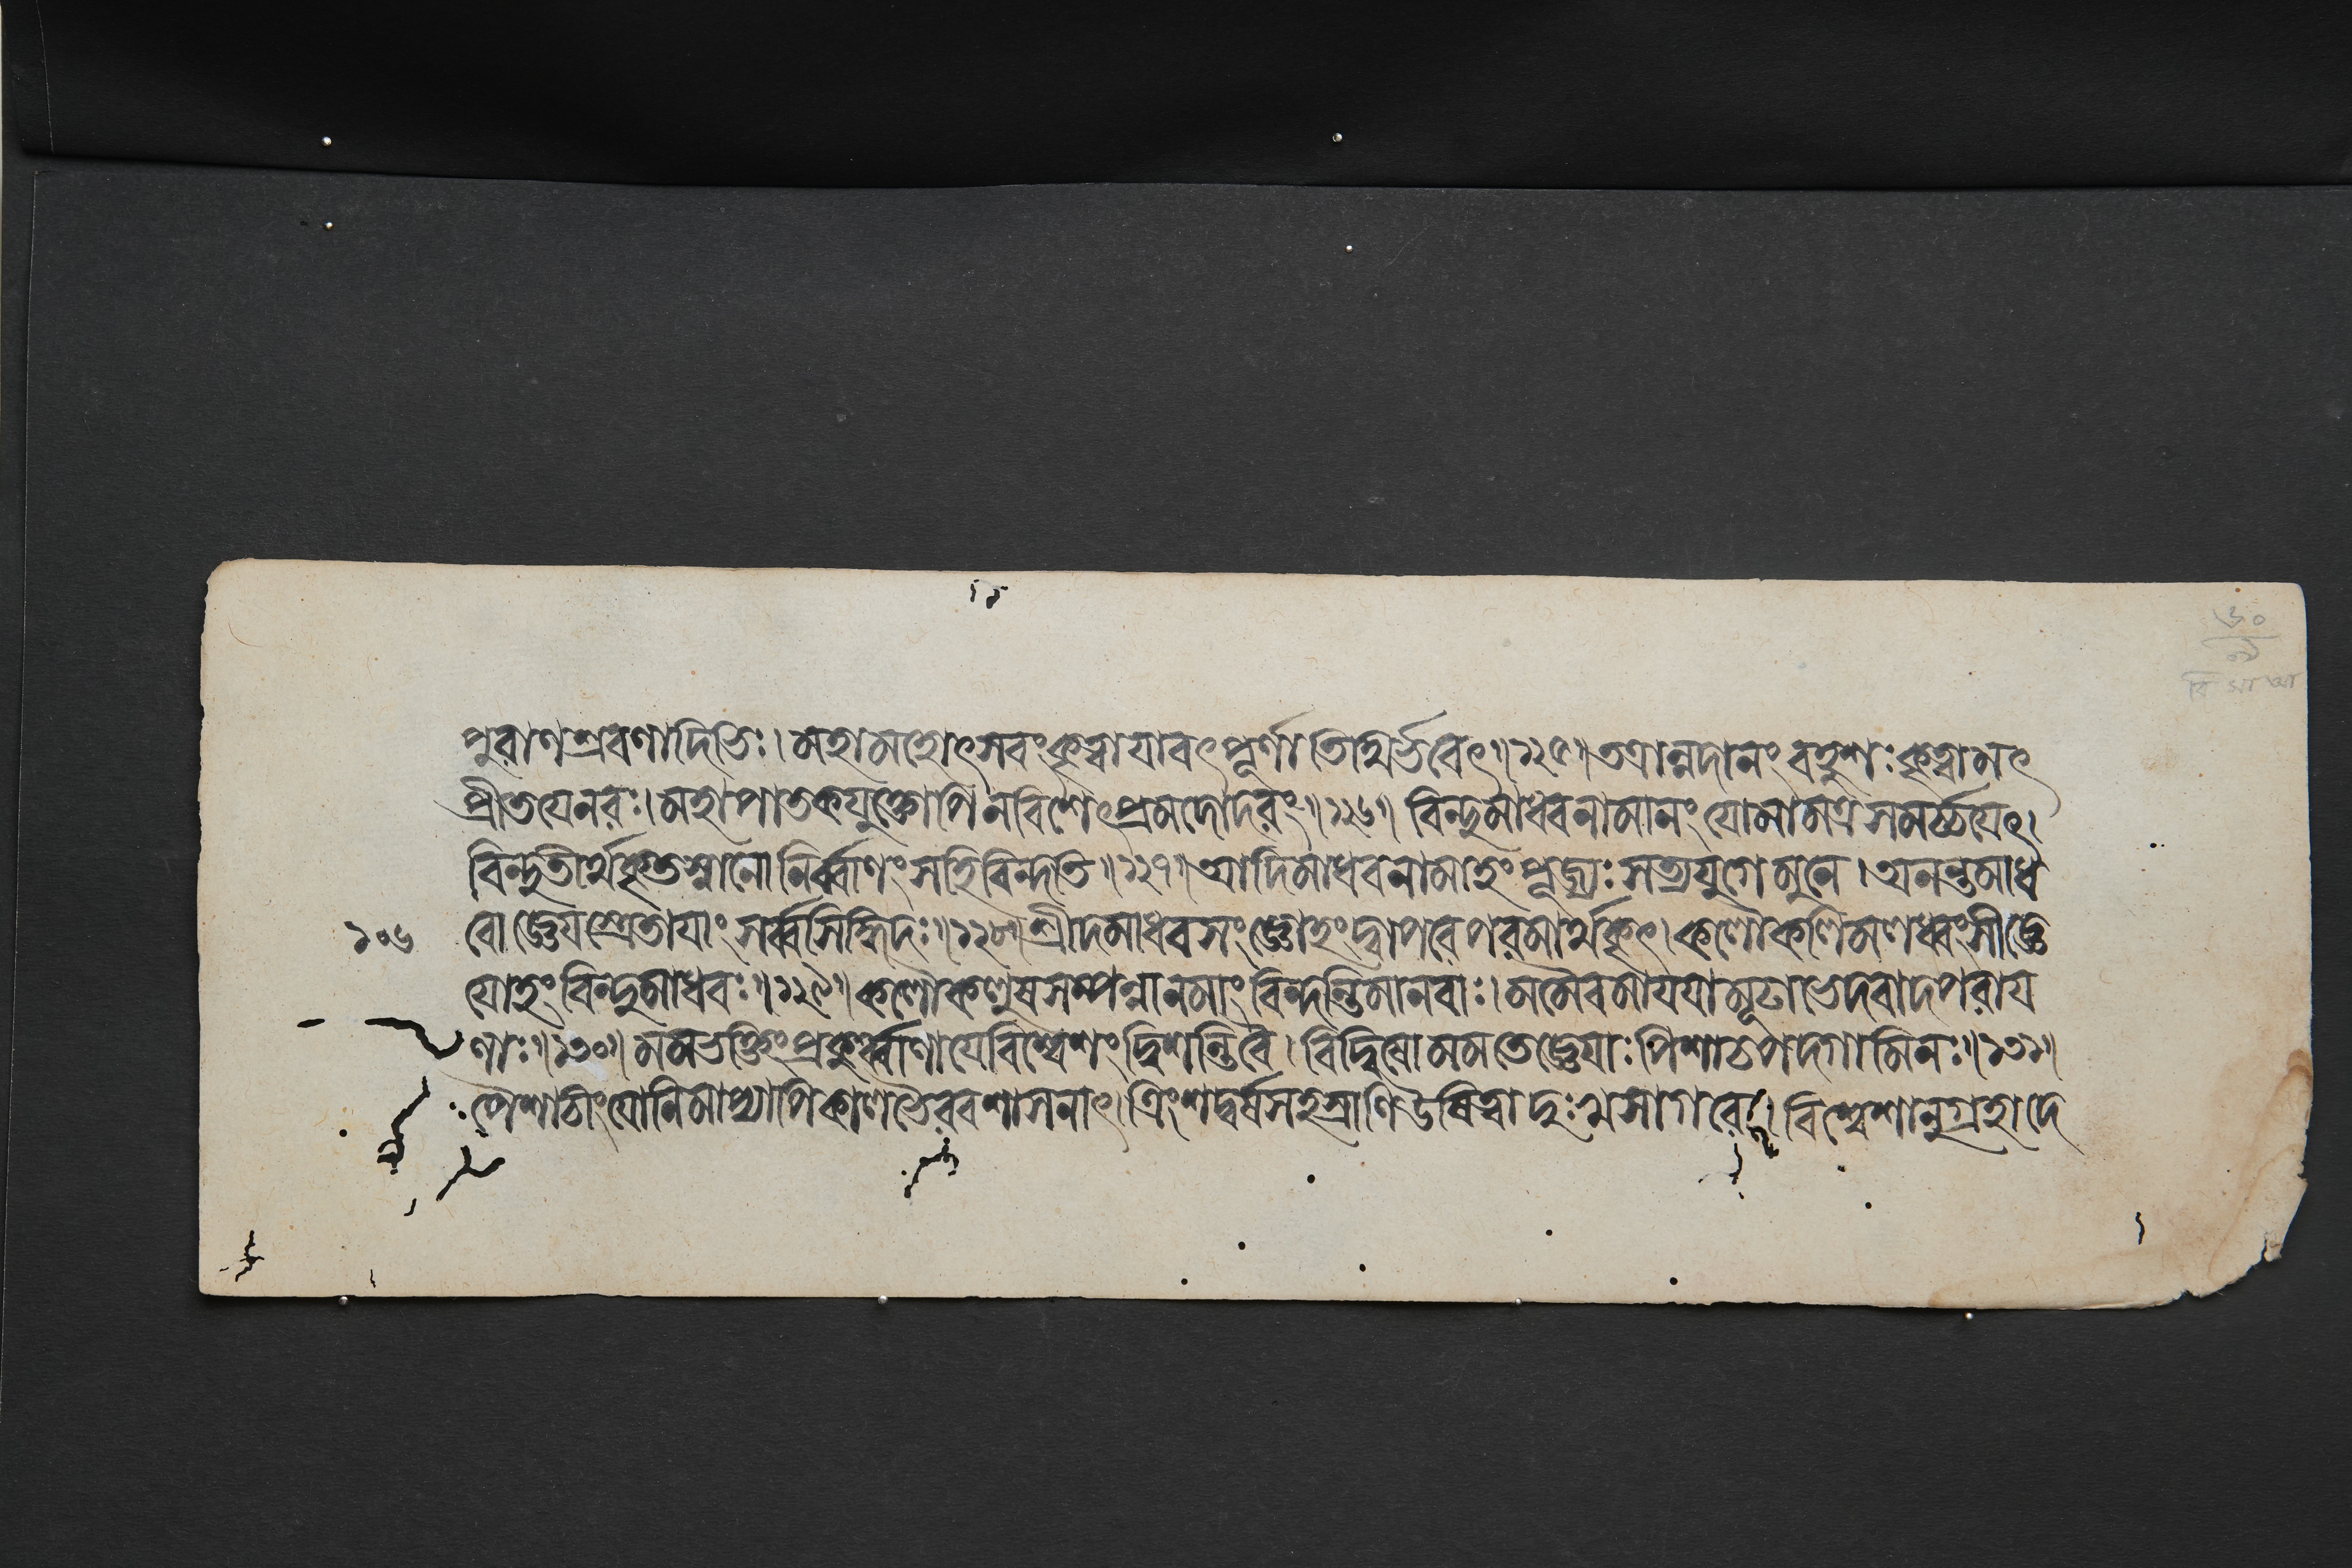 পুরাণশ্রবণাদিভিঃ। মহামহোৎসবংকৃত্বাযাবৎপূর্ণাতিথির্ভবেৎ॥১২৫॥ তত্রান্নদানং বহুশঃ কৃত্বামৎ
প্রীতযেনরঃ। মহাপাতকযুক্তোপি নবিশেৎপ্রমদোদরং॥১২৬॥ বিন্দুমাধবনামানং যোমামত্রসমর্চ্চযেৎ।
বিন্দুতীর্থকৃতস্নানো নির্ব্বাণং সহিবিন্দতি॥১২৭॥ আদিমাধবনামাহং পূজ্যঃ সত্যযুগে মুনে। অনন্তমাধ
১০৬ বোজ্ঞেযস্ত্রেতাযাং সর্ব্বসিদ্ধিদঃ॥১২৮॥ শ্রীদমাধবসংজ্ঞোহং দ্বাপরেপরমার্থকৃৎ। কলৌকলিমলধ্বংসীজ্ঞে
যোহং বিন্দুমাধবঃ॥১২৯॥ কলৌকলুষসম্পন্নানমাং বিন্দন্তিমানবাঃ। মমৈবমাযযামূঢাভেদবাদপরায
ণাঃ॥১৩০॥ মমভক্তিংপ্রকুর্ব্বাণাযেবিশ্বেশং দ্বিশন্তিবৈ। বিদ্বিষোমমতেজ্ঞেযাঃ পিশাচপদগামিনঃ॥১৩১॥
পৈশাচীংযোনিমাপ্যাপিকালভৈরবশাসনাৎ। ত্রিংশদ্বর্ষসহস্রাণিউষিত্বাদুঃখসাগরে। বিশ্বেশানুগ্রহাদে
৬০
বি